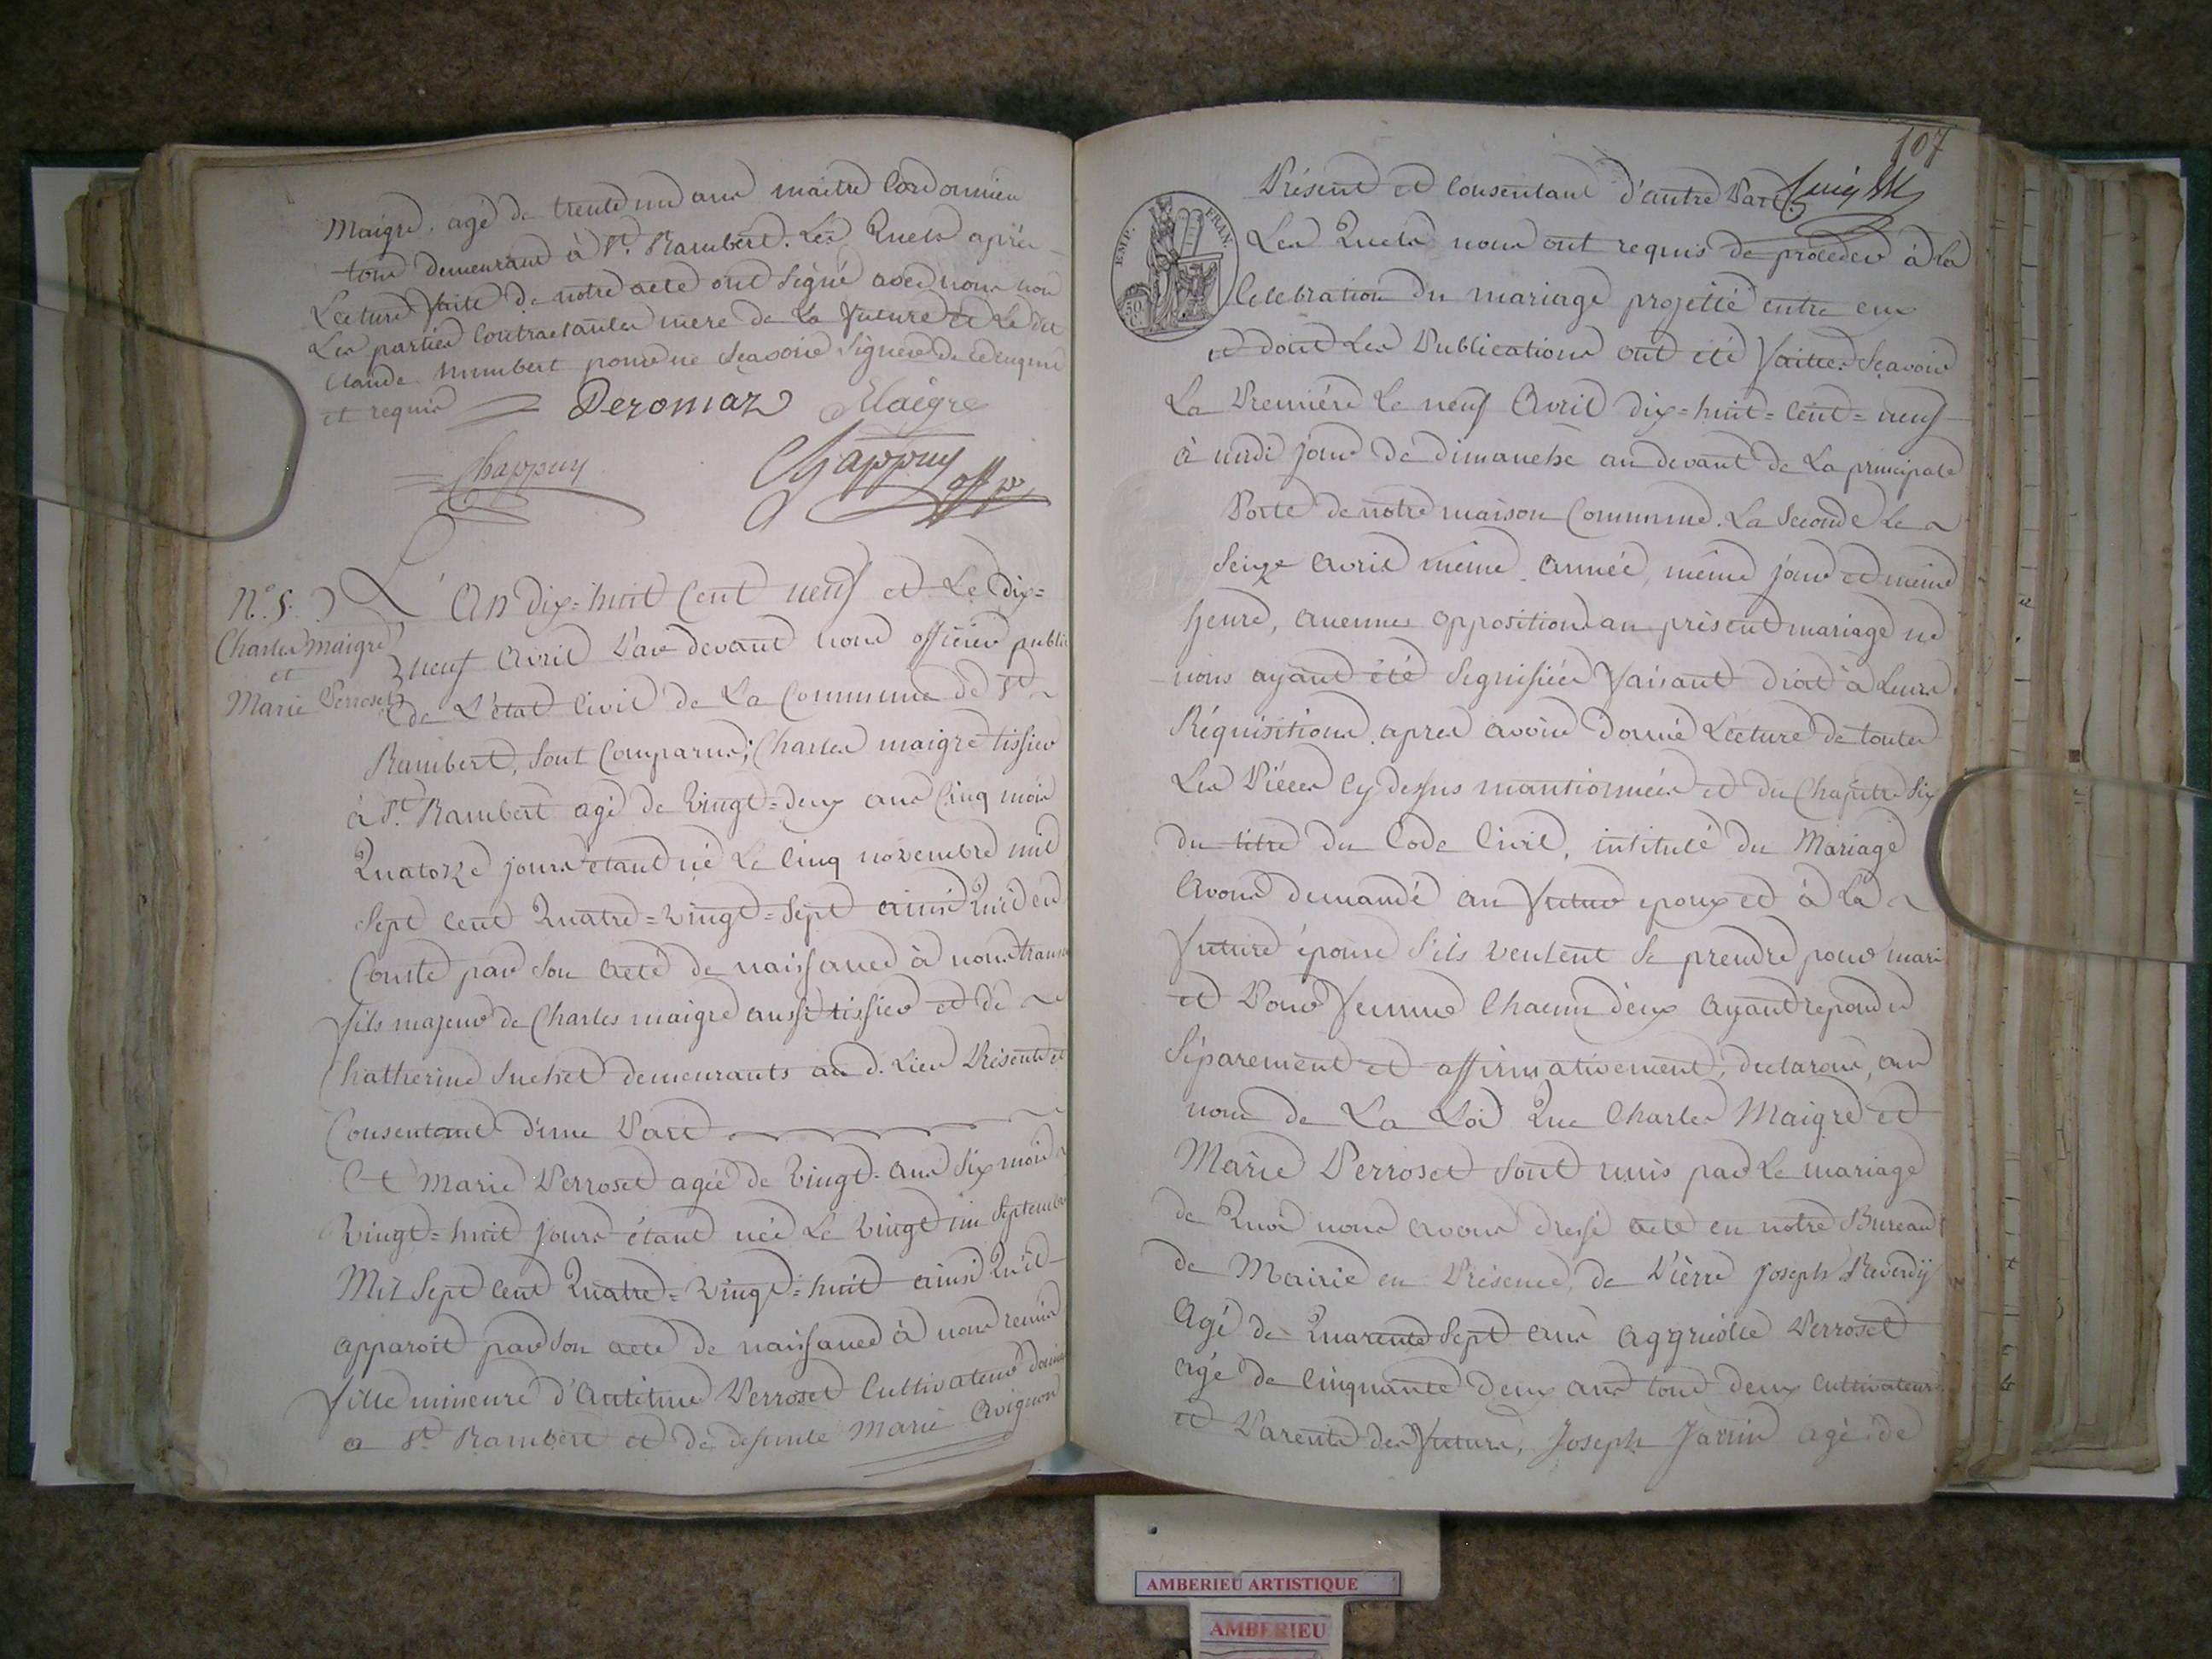 Maigre, agé de trente un ans maître Cordonnier
tous demeurant à St. Rambert. Les Quels après
Lecture faite de notre acte ont Signé avec nous non
Les parties Contractantes mere de La future et Le dit
Claude humbert pour ne Sçavoir Signer de ce enquis
et requis Peromaz Maigre
Chappuy Chappuy off. p.
N.° 5.
Charles maigre
et
Marie Perroset
L'An dix=huit Cent neuf et Le Dix=
neuf Avril Par devant nous officier public
de L'état Civil de La Commune de St
Rambert, Sont Comparus; Charles maigre tissier
à St. Rambert agé de Vingt=deux ans Cinq mois
Quatorze jours étant né Le Cinq novembre mil
Sept Cent Quatre=Vingt=Sept ainsi Qu'il en
Conste par Son acte de naissance à nous
fils majeur de Charles maigre aussi tissier et de
Chatherine Suchet demeurants au d. Lieu Présents et
Consentant d'une Part
Et Marie Perroset agée de Vingt ans Six mois
Vingt=huit jours étant née Le Vingt un Septembre
Mil Sept Cent Quatre=Vingt=huit ainsi Qu'il
apparoit par Son acte de naissance à nous remis
fille mineure d'Antelme Perroset Cultivateur
a St Rambert et de defunte Marie Avignon
107
Présent et Consentant d'autre Part
EMP. FRAN.
50 C.
Les Quels nous ont requis de procéder à La
Celebration du mariage projetté entre eux
et dont Les Publications ont été faittes Sçavoir
La Premiére Le neuf Avril dix=huit=Cent=neuf
à midi jour de dimanche au devant de La principale
Porte de notre maison Commune. La Seconde Le
Seize Avril même année, même jour et même
heure, aucunes opposition au présent mariage ne
nous ayant été Signifiées faisant droit à Leurs
Réquisitions. apres avoir donné Lecture de toutes
Les Piéces Cy dessus mantionnées et du Chapitre Six
du titre du Code Civil, intitulé du Mariage
Avons demandé au futur epoux et à La
future épouse S'ils veulent Se prendre pour mari
et Pour femme Chacun d'eux ayant repondu
Séparement et affirmativement; declarons, au
nom de La Loi Que Charles Maigre et
Marie Perroset Sont unis par Le mariage
de Quoi nous avons dressé acte en notre Bureau
de Mairie en Présence, de Piérre joseph Reverdy
Agé de Quarente Sept ans Aggricolle Perroset
agé de Cinquante deux ans tous deux Cultivateurs
et Parents des futurs, Joseph Janin agé de
AMBERIEU ARTISTIQUE
AMBERIEU